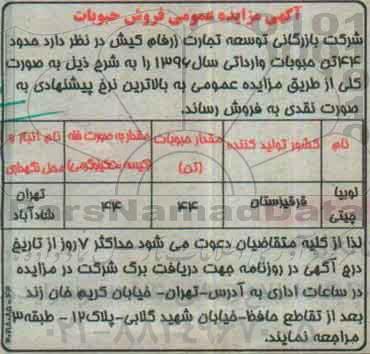 آگهی مزایده عمومی فروش حبوبات
شرکت بازرگانی توسعه تجارت زرفام کیش در نظر دارد حدود
۴۴تن حبوبات وارداتی سال۱۳۹۶ را به شرح ذیل به صورت
کلی از طریق مزایده عمومی به بالاترین نرخ پیشنهادی به
صورت نقدی به فروش رساند.
نام کشور تولید کننده مقدار حبوبات (تن) مقدار به صورت فله نام انبار و محل نگهداری
لوبیا چیتی قرقیزستان ۴۴ ۴۴ تهران شادآباد
لذا از کلیه متقاضیان دعوت می شود حداکثر ۷روز از تاریخ
درج آگهی در روزنامه جهت دریافت برگ شرکت در مزایده
در ساعات اداری به آدرس-تهران- خیابان کریم خان زند
بعد از تقاطع حافظ-خیابان شهید گلابی-پلاک۱۲- طبقه۳
مراجعه نمایند.
ParsNamadData